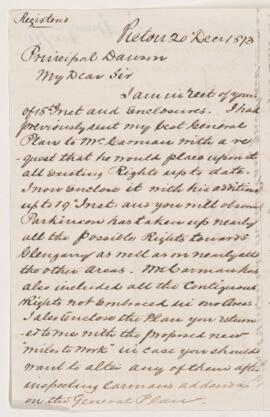 Registered
Pictou 20 Decr 1873
Principal Dawson
My Dear Sir
I am in rect of yours
of 15 Inst and Enclosures. I had
previously sent my best General
Plan to Mr Carman with a re-
quest that he would place upon it
all Existing Rights up to date.
I now Enclose it with his additions
up to 19 Inst and you will observe
Parkinson has taken up nearly
all the Possible Rights towards
Glengarry as well as on nearly all
the other Areas. Mr Carman has
also included all the Contiguous
Rights not Embraced in our Areas.
I also Enclose the Plan you return-
ed to me with the proposed new
"miles to work" in case you should
want to alter any of them after
inspecting Carmans addenda
on the General Plan